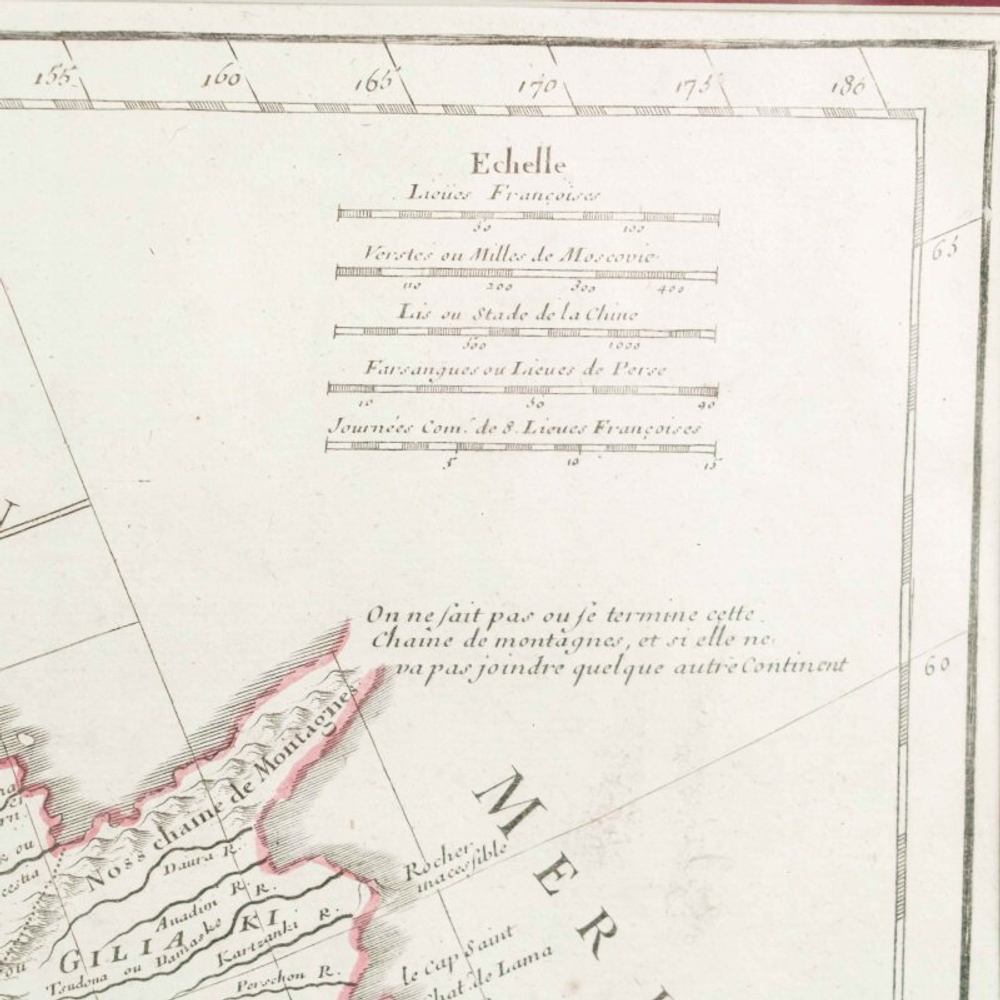 155 160 165 170 175 180
Echelle
Lieües Françoises
50 100
Verstes ou Milles de Moscovie
110 200 300 400
Lis ou Stade de la Chine
500 1000
Farsangues ou Lieues de Perse
10 50 90
Journées Com. de 8. Lieues Françoises
5 10 15
65
On ne sait pas ou se termine cette
Chaine de montagnes, et si elle ne
va pas joindre quelque autre Continent
60
Noss chaine de Montagnes
MER
Rocher
inacessible
Daura R.
Anadim R.
R.
GILIAKI
Tsudona ou Damasko
Kartzanki R.
Perschon R.
le Cap Saint
de Lama
ou
ou